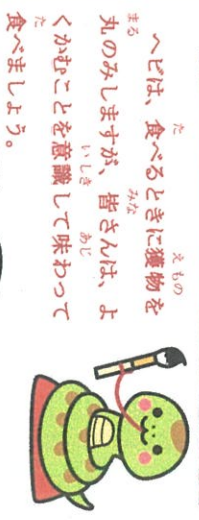 ヘビは、食べるときに獲物を
丸のみしますが、皆さんは、よ
くかむことを意識して味わって
食べましょう。